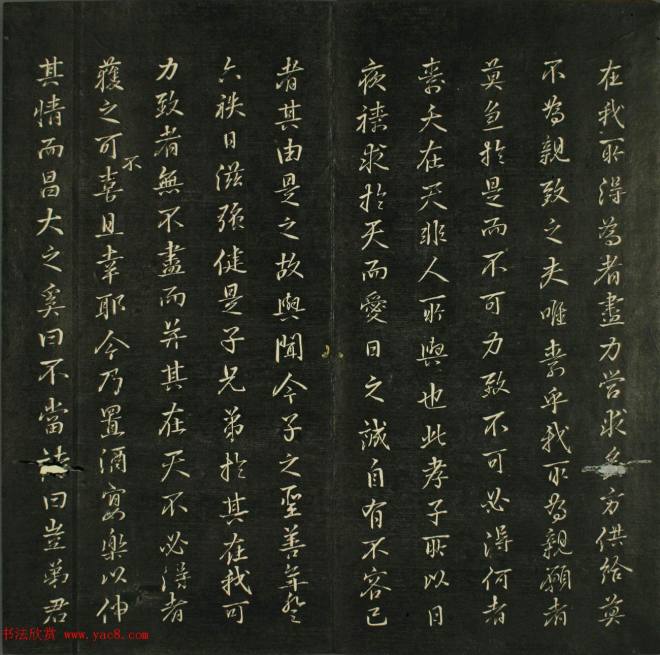 在我所得為者盡力營求多方供給莫
不為親致之夫唯壽乎我所為親願者
莫急於是而不可力致不可必得何者
壽夭在天非人所與也此孝子所以日
夜禱求於天而愛日之誠自有不容已
者其由是之故與聞今子之聖善年登
六袟日滋強健是子兄弟於其在我可
力致者無不盡而并其在天不必得者
獲之可不喜且幸耶今乃置酒宴樂以伸
其情而昌大之奚曰不當 曰豈弟君
书法欣赏 www.yac8.com